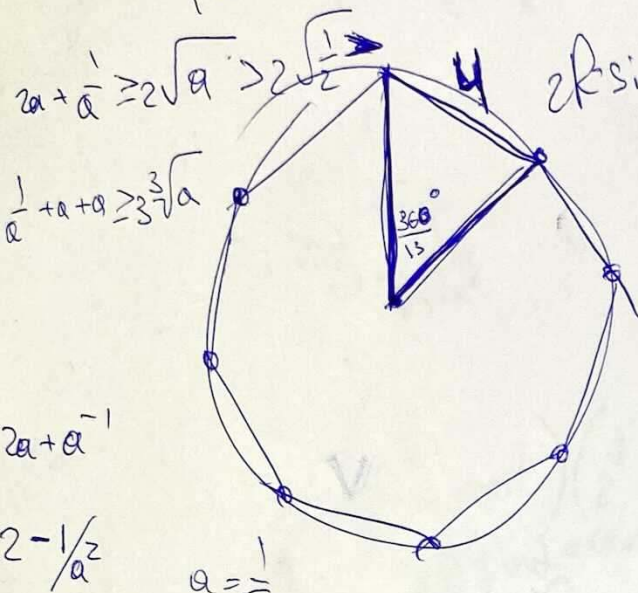 1
2a + 1/a ≥ 2√a > 2√(1/2)
4
2R·si
1/a + a + a ≥ 3∛a
360°/13
2a + a⁻¹
2 - 1/a²
a = 1